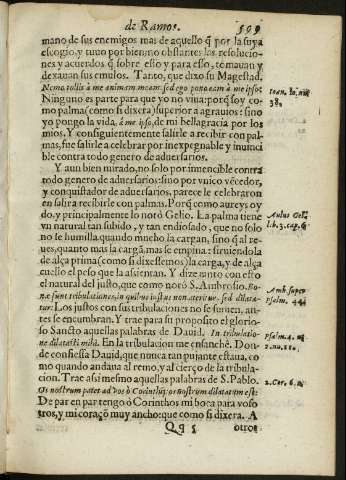 de Ramos. 599
mano de sus enemigos mas de aquello q̃ por la suya
escogio, y tuuo por bien: no obstantes las resolucio-
nes y acuerdos q̃ sobre esso y para esso, tomauan y
dexauan sus emulos. Tanto, que dixo su Magestad.
Nemo tollit à me animam meam, sed ego pono eam à me ipso:
Ninguno es parte para que yo no viua: porq̃ soy co-
mo palma (como si dixera) superior a agrauios: sino
yo pongo la vida, à me ipso, de mi bella gracia por los
mios. Y consiguientemente salirle a recibir con pal-
mas, fue salirle a celebrar por inexpegnable y inuinci
ble contra todo genero de aduersarios.
Y aun bien mirado, no solo por inuencible contra
todo genero de aduersarios: sino por vnico vẽcedor,
y conquistador de aduersarios, parece le celebraron
en salir a recibirle con palmas. Porq̃ como aureys oy-
do, y principalmente lo notò Gelio. La palma tiene
vn natural tan subido, y tan endiosado, que no solo
no se humilla quando mucho la cargan, sino q̃ al re-
ues, quanto mas la cargã, mas se empina: siruiendola
de alça prima (como si dixessemos) la carga, y de alça
cuello el peso que la assientan. Y dize tanto con esto
el natural del justo, que como notò S. Ambrosio. Bo-
næ sunt tribulationes, in quibus iustus non ateritur, sed dilata-
tur: Los justos con sus tribulaciones no se suruen, an-
tes se encumbran. Y trae para su proposito el glorio-
so Sancto aquellas palabras de Dauid. In tribulatio-
ne dilatasti mihi. En la tribulacion me ensanchè. Don-
de confiessa Dauid, que nunca tan pujante estaua, co
mo quando andaua al remo, y al cierço de la tribula-
cion. Trae assi mesmo aquellas palabras de S. Pablo.
Os nostrum patet ad vos ò Corinthij, cor nostrum dilatatum est:
De par en par tengo ò Corinthos mi boca para voso
tros, y mi coraçõ muy ancho: que como si dixera. A
Qq 5 otros
Ioan. 10. nu
38.
Aulus Geli.
lib. 3. cap. 6.
Amb. super
psalm. 44.
psalm. 4. nu
2. nu. 11.
2. Cor. 6. nu